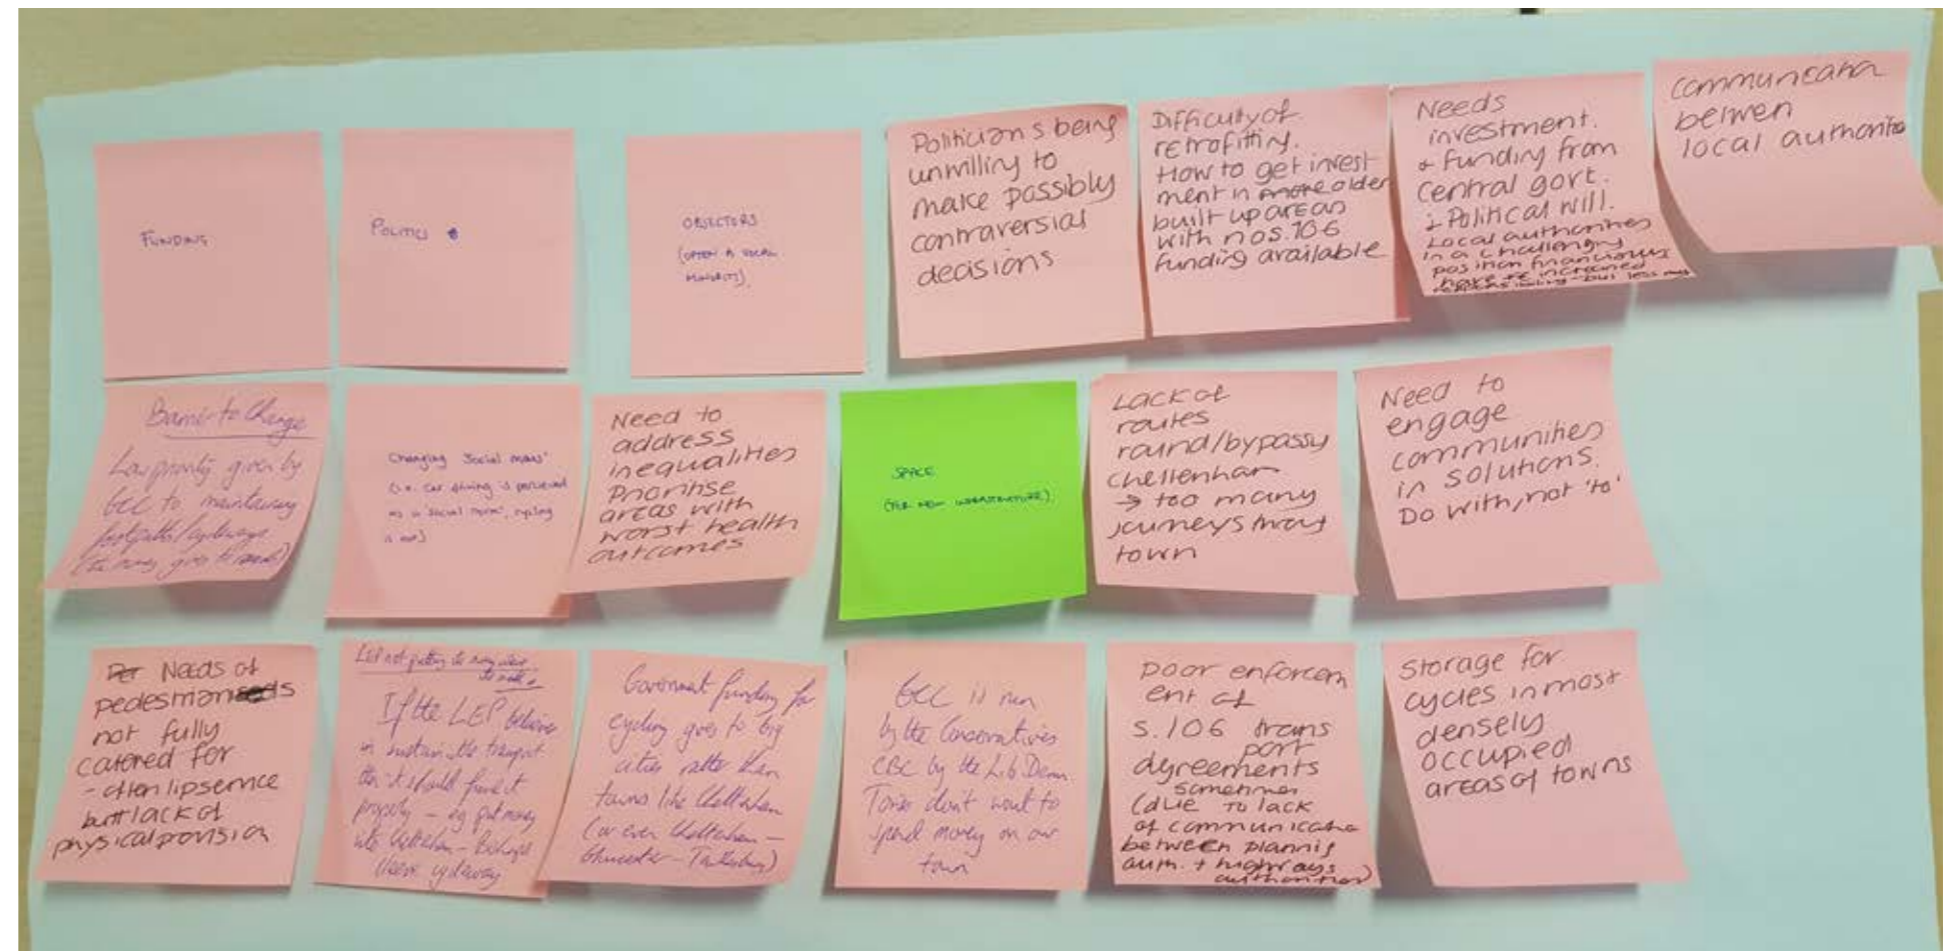 FUNDING
POLITICS
OBJECTORS
(OFTEN A VOCAL
MINORITY).
Politicians being
unwilling to
make possibly
contraversial
decisions
Difficulty of
retrofitting.
How to get invest
ment in more older
built up areas
with no s.106
funding available
Needs
investment.
+ funding from
central govt.
& Political will.
Local authorities
in a challenging
position financially
have increased
responsibility - but less
communication
between
local authorities
Barrier to Change
Low priority given by
GCC to maintaining
footpaths/cycleways
(the money goes to roads)
Changing 'social norms'
(i.e. car driving is perceived
as a 'social norm', cycling
is not)
Need to
address
inequalities
Prioritise
areas with
worst health
outcomes
SPACE
(FOR NEW INFRASTRUCTURE).
Lack of
routes
round/bypassing
Cheltenham
→ too many
journeys thro'
town
Need to
engage
communities
in solutions.
Do with, not 'to'
Needs of
pedestrians
not fully
catered for
- often lipservice
but lack of
physical provision
LEP not putting its money where
its mouth is
If the LEP believes
in sustainable transport
then it should fund it
properly - eg put money
into Cheltenham - Bishops
Cleeve cycleway
Government funding for
cycling goes to big
cities rather than
towns like Cheltenham
(or even Cheltenham -
Gloucester - Tewkesbury)
GCC is run
by the Conservatives
CBC by the Lib Dems.
Tories don't want to
spend money on our
town
Poor enforcem
ent of
s.106 trans
port
agreements
sometimes
(due to lack
of communication
between planning
auth. + highways
authorities)
Storage for
cycles in most
densely
occupied
areas of towns